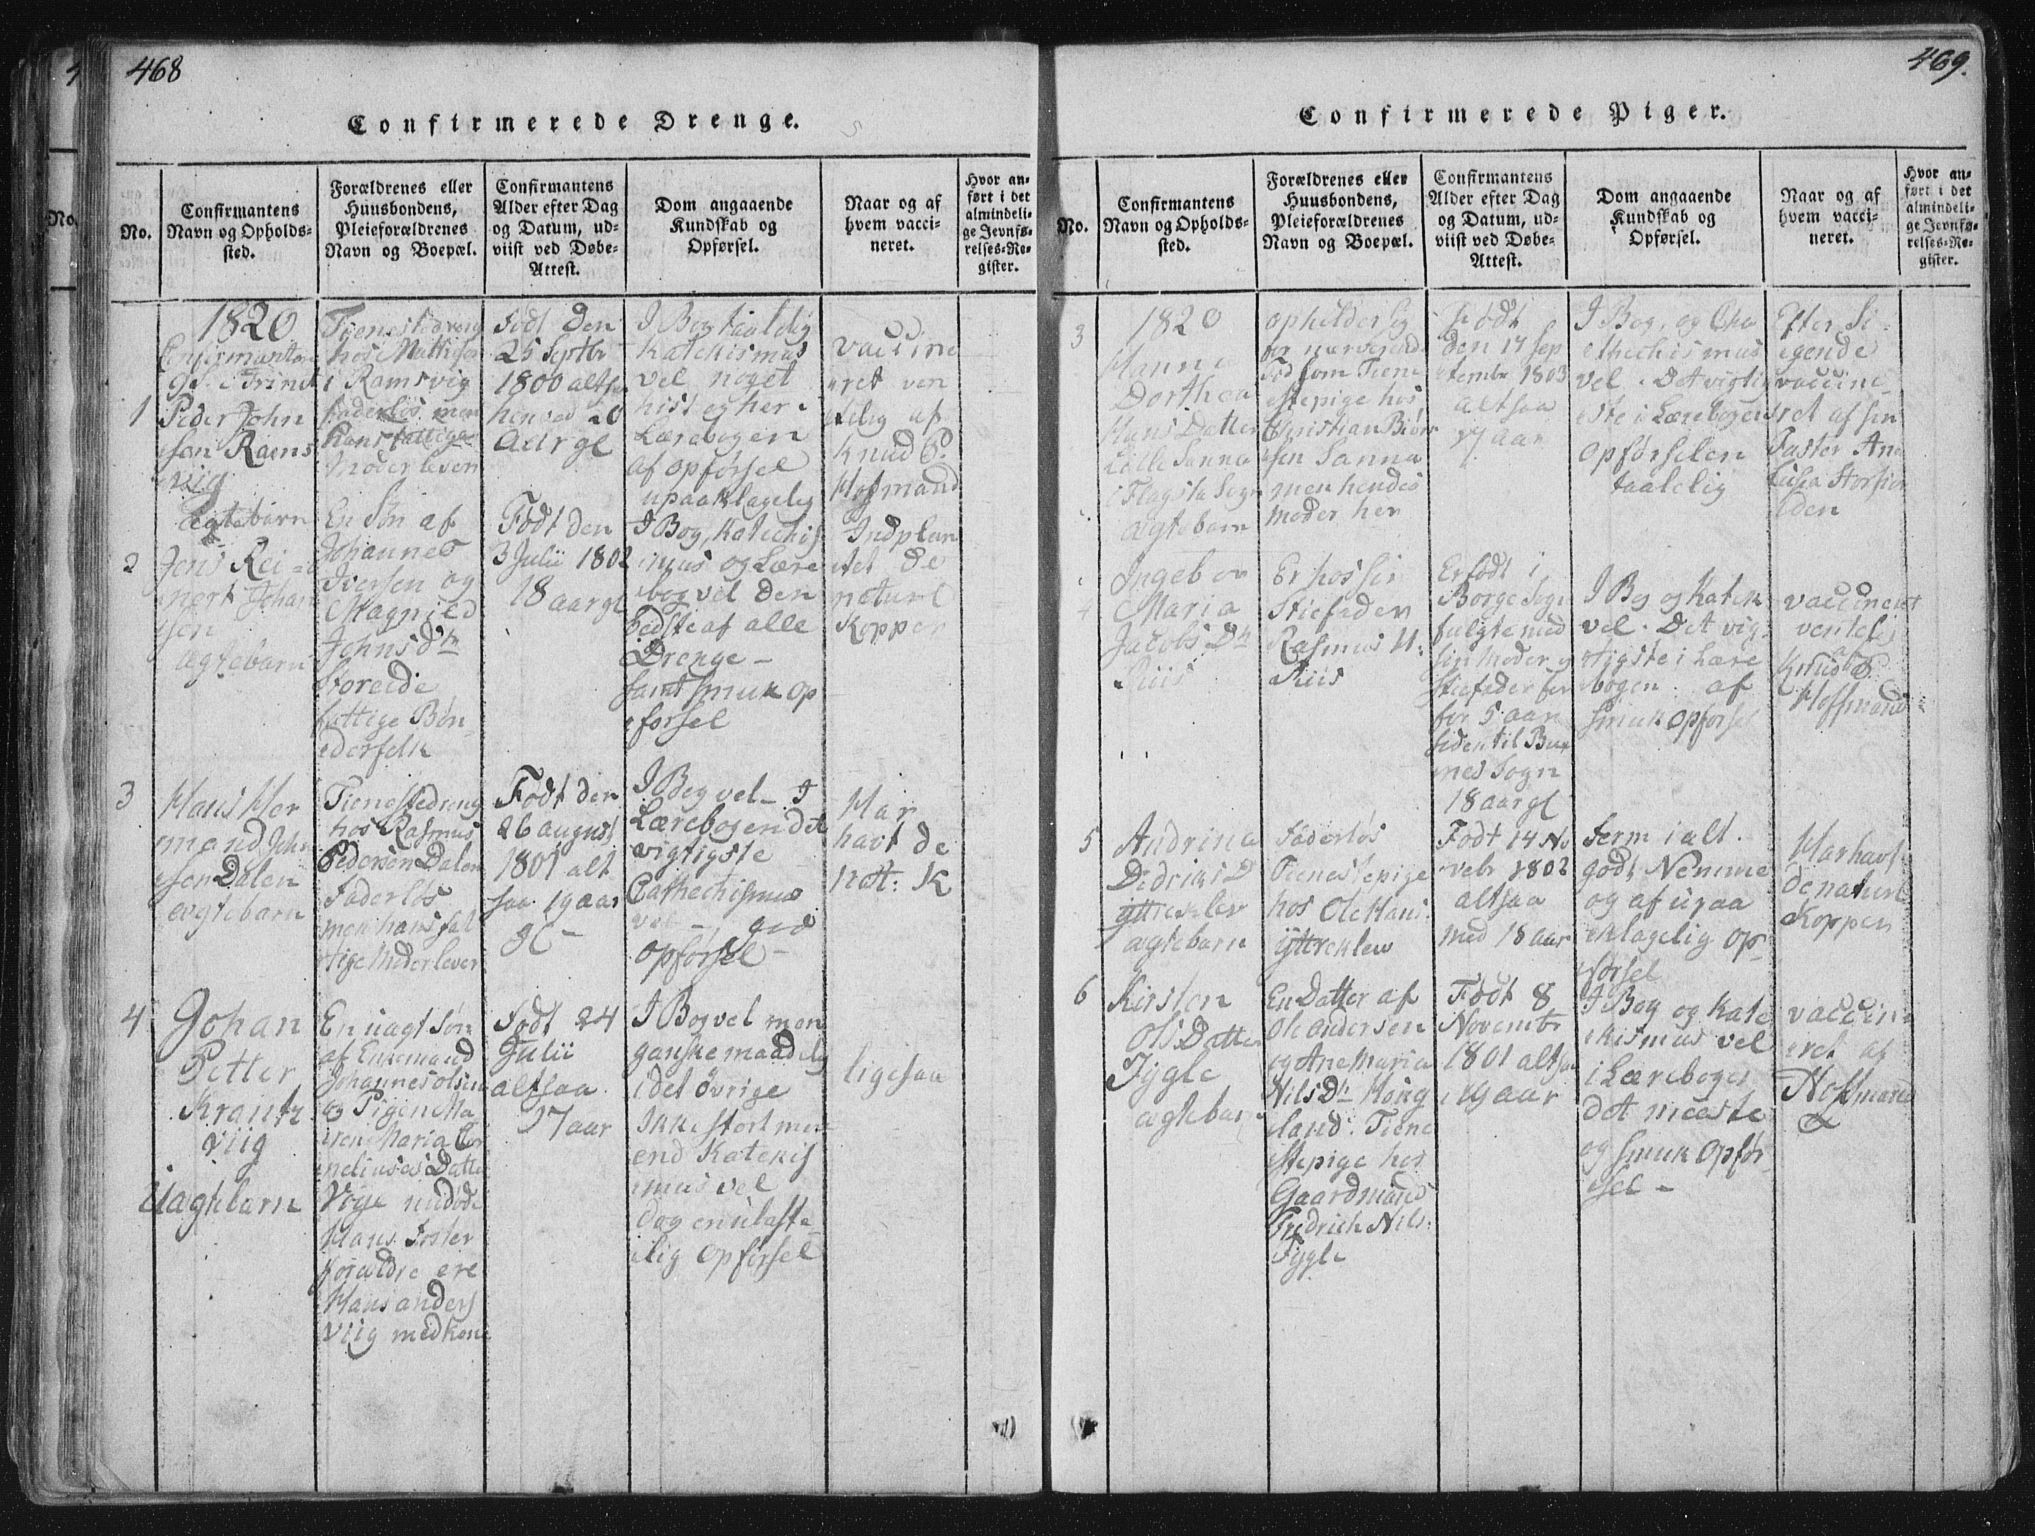 468
Confirmerede Drenge.
No.
Confirmantens
Navn og Opholds-
sted.
Forældrenes eller
Huusbondens,
Pleieforældrenes
Navn og Boepæl.
Confirmantens
Alder efter Dag
og Datum, ud-
viist ved Døbe-
Attest.
Dom angaaende
Kundskab og
Opførsel.
Naar og af
hvem vacci-
neret.
Hvor an-
ført i det
almindeli-
ge Jevnfø-
relses-Re-
gister.
1820
1
Peder John
sen Rams
viig
ægtebarn
Tienestedreng
hos Mathis
i Ramsvig
faderløs men
hans fattige
moder lever
Født den
25 Septbr
1800 altsaa
henved 20
Aar gl
I Bog taalelig
Katekismus
vel noget
hist og her i
Lærebogen
af opførsel
upaaklagelig
vaccine
ret ven
telig af
Knud P.
Hofmand
2
Jens Rei-
nert Johan
sen
ægtebarn
En Søn af
Johannes
Iversen og
Magnild
Johnsdtr
Storeide
fattige Bøn-
derfolk
Født den
3 Julii 1802
18 aar gl
I Bog, Katechis
mus og Lære
bog vel den
bedste af alle
Drenge -
samt smuk op
førsel
Indplan
tet de
naturl
Kopper
3
Hans Her
mand John
sen Dalen
ægtebarn
Tienestedreng
hos Rasmus
Pedersen Dalen
Faderløs
men hans fat
tige Moder lever
Født den
26 august
1801 alt
saa 19 aar
gl -
I Bog vel - I
Lærebogen det
vigtigste
Cathechismus
vel - god
opførsel -
Har
havt de
nat: K
4
Johan
Petter
Krantz
viig
Uægtebarn
En uægt søn
af Enkemand
Johannes olsen
og Pigen Ma
ren Maria Cor
nelius Datter
Voge nu døde
Hans Foster
forældre ere
Hans anders
Viig med kone
Født 24
Julii
altsaa
17 aar
I Bog vel men
ganske maadelig
i det øvrige
Ikke stort mer
end Katekis
mus vel
dog en ulaste
lig opførsel
ligesaa
469.
Confirmerede Piger.
No.
Confirmantens
Navn og Opholds-
sted.
Forældrenes eller
Huusbondens,
Pleieforældrenes
Navn og Boepæl.
Confirmantens
Alder efter Dag
og Datum, ud-
viist ved Døbe-
Attest.
Dom angaaende
Kundskab og
Opførsel.
Naar og af
hvem vacci-
neret.
Hvor an-
ført i det
almindeli-
ge Jevnfø-
relses-Re-
gister.
3
1820
Hanna
Dorthea
Hans Datter
Lille Sanna
i Flagsta Sogn
ægtebarn
opholder sig
for nærværende
Tid som Tiene
stepige hos
Christian Biørn
sen Sanna
men hendes
Moder her
Født
den 17 Sep
tembr 1803
altsaa
17 aar
I Bog, og Cha
thechismus
vel. Det vigtig
ste i Lærebogen
opførselen
taalelig
Efter Si-
gende
vaccine
ret af sin
Faster
4
Ingebor
Maria
Jacobs Dtr
Riis
Er hos sin
Stiefader
Rasmus H:
Riis
Er født i
Borge Sogn
fulgte med
sin Moder og
Stiefader her
for 5 aar
siden til Bux
nes Sogn
18 aar gl
I Bog og Katek
vel. Det vig-
tigste i Lære
bogen. af
smuk opførsel
vaccineret
ventelig
af
Knud P
Hoffmand
5
Andrina
Dedriks D
yttreklev
ægtebarn
Faderløs
Tienestepige
hos Ole Hans
Yttreklew
Født 14 No
vebr 1802
altsaa
med 18 aar
ferm i alt.
godt Nemme
og af upaa
klagelig op-
førsel
Har havt
de naturl
Kopper
6
Kirsten
Ols Datter
Tygle
ægtebarn
En Datter af
Ole andersen
og Ane Maria
Nils Dtr Kong
sland. Tiene
stepige hos
Gaardmand
Fridrich Nils.
Tygle
Født 8
Novembr
1801 altsaa
19 aar
I Bog og Kate
kismus vel
i Lærebogen
det meeste
og smuk opfør-
sel -
vaccin-
eret af
Hoffmand